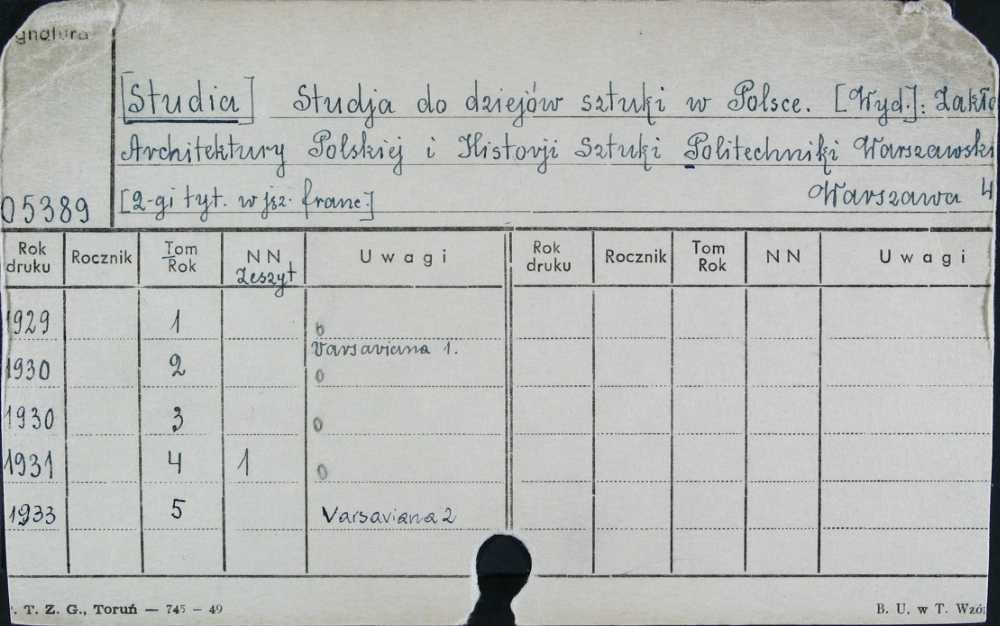 gnatura
[Studia] Studja do dziejów sztuki w Polsce. [Wyd.]: Zakło
Architektury Polskiej i Historji Sztuki Politechniki Warszawski
05389 [2-gi tyt. w jęz. franc.] Warszawa 4
Rok druku Rocznik Tom Rok NN Zeszyt Uwagi Rok druku Rocznik Tom Rok NN Uwagi
1929 1 0
Varsaviana 1.
1930 2 0
1930 3 0
1931 4 1 0
1933 5 Varsaviana 2
. T. Z. G., Toruń — 745 — 49 B. U. w T. Wzó